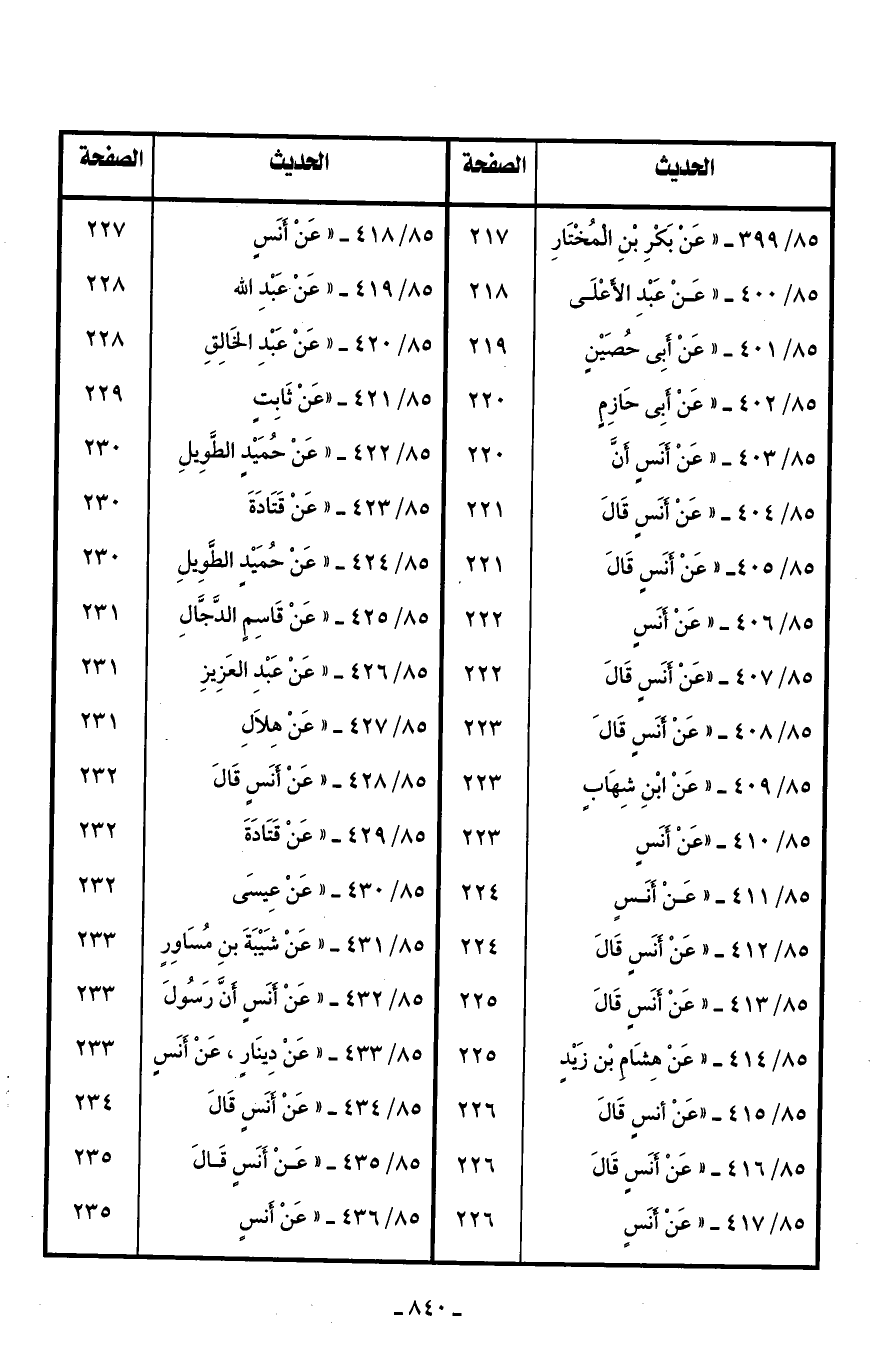 الحديث الصفحة الحديث الصفحة
٨٥/ ٣٩٩ ـ « عَنْ بَكْرِ بْنِ الْمُخْتَارِ ٢١٧ ٨٥/ ٤١٨ ـ « عَنْ أَنَسٍ ٢٢٧
٨٥/ ٤٠٠ ـ « عَنْ عَبْدِ الأَعْلَى ٢١٨ ٨٥/ ٤١٩ ـ « عَنْ عَبْدِ الله ٢٢٨
٨٥/ ٤٠١ ـ « عَنْ أَبِى حُصَيْنٍ ٢١٩ ٨٥/ ٤٢٠ ـ « عَنْ عَبْدِ الخَالِقِ ٢٢٨
٨٥/ ٤٠٢ ـ « عَنْ أَبِى حَازِمٍ ٢٢٠ ٨٥/ ٤٢١ ـ «عَنْ ثَابِتٍ ٢٢٩
٨٥/ ٤٠٣ ـ « عَنْ أَنَسٍ أَنَّ ٢٢٠ ٨٥/ ٤٢٢ ـ « عَنْ حُمَيْدٍ الطَّوِيلِ ٢٣٠
٨٥/ ٤٠٤ ـ « عَنْ أَنَسٍ قَالَ ٢٢١ ٨٥/ ٤٢٣ ـ « عَنْ قَتَادَةَ ٢٣٠
٨٥/ ٤٠٥ـ « عَنْ أَنَسٍ قَالَ ٢٢١ ٨٥/ ٤٢٤ ـ « عَنْ حُمَيْدٍ الطَّوِيلِ ٢٣٠
٨٥/ ٤٠٦ ـ « عَنْ أَنَسٍ ٢٢٢ ٨٥/ ٤٢٥ ـ « عَنْ قَاسِمٍ الدَّجَّالِ ٢٣١
٨٥/ ٤٠٧ ـ «عَنْ أَنَسٍ قَالَ ٢٢٢ ٨٥/ ٤٢٦ ـ « عَنْ عَبْدِ العَزِيزِ ٢٣١
٨٥/ ٤٠٨ ـ « عَنْ أَنَسٍ قَالَ ٢٢٣ ٨٥/ ٤٢٧ ـ « عَنْ هِلاَلِ ٢٣١
٨٥/ ٤٠٩ ـ « عَنْ ابْنِ شِهَابٍ ٢٢٣ ٨٥/ ٤٢٨ ـ « عَنْ أَنَسٍ قَالَ ٢٣٢
٨٥/ ٤١٠ ـ «عَنْ أَنَسٍ ٢٢٣ ٨٥/ ٤٢٩ ـ « عَنْ قَتَادَةَ ٢٣٢
٨٥/ ٤١١ ـ « عَنْ أَنَسٍ ٢٢٤ ٨٥/ ٤٣٠ ـ « عَنْ عِيسَى ٢٣٢
٨٥/ ٤١٢ ـ « عَنْ أَنَسٍ قَالَ ٢٢٤ ٨٥/ ٤٣١ ـ « عَنْ شَيْبَةَ بنِ مُسَاوِرٍ ٢٣٣
٨٥/ ٤١٣ ـ « عَنْ أَنَسٍ قَالَ ٢٢٥ ٨٥/ ٤٣٢ ـ « عَنْ أَنَسٍ أَنَّ رَسُولَ ٢٣٣
٨٥/ ٤١٤ ـ « عَنْ هِشَامِ بْنِ زَيْدٍ ٢٢٥ ٨٥/ ٤٣٣ ـ « عَنْ دِينَارٍ ، عَنْ أَنَسٍ ٢٣٣
٨٥/ ٤١٥ ـ «عَنْ أنسٍ قَالَ ٢٢٦ ٨٥/ ٤٣٤ ـ « عَنْ أَنَسٍ قَالَ ٢٣٤
٨٥/ ٤١٦ ـ « عَنْ أَنَسٍ قَالَ ٢٢٦ ٨٥/ ٤٣٥ ـ « عَنْ أَنَسٍ قَالَ ٢٣٥
٨٥/ ٤١٧ ـ « عَنْ أَنَسٍ ٢٢٦ ٨٥/ ٤٣٦ ـ « عَنْ أَنسٍ ٢٣٥
ـ ٨٤٠ ـ